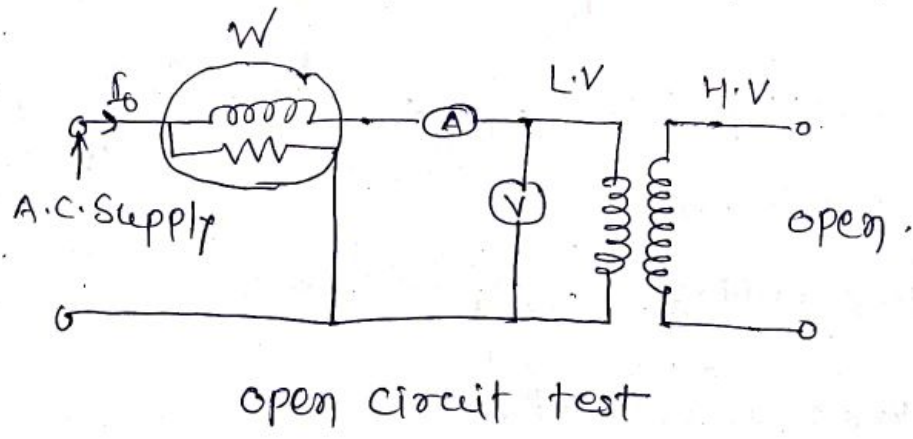 W
I₀
A
L.V
H.V.
V
A.C. Supply
open.
open circuit test